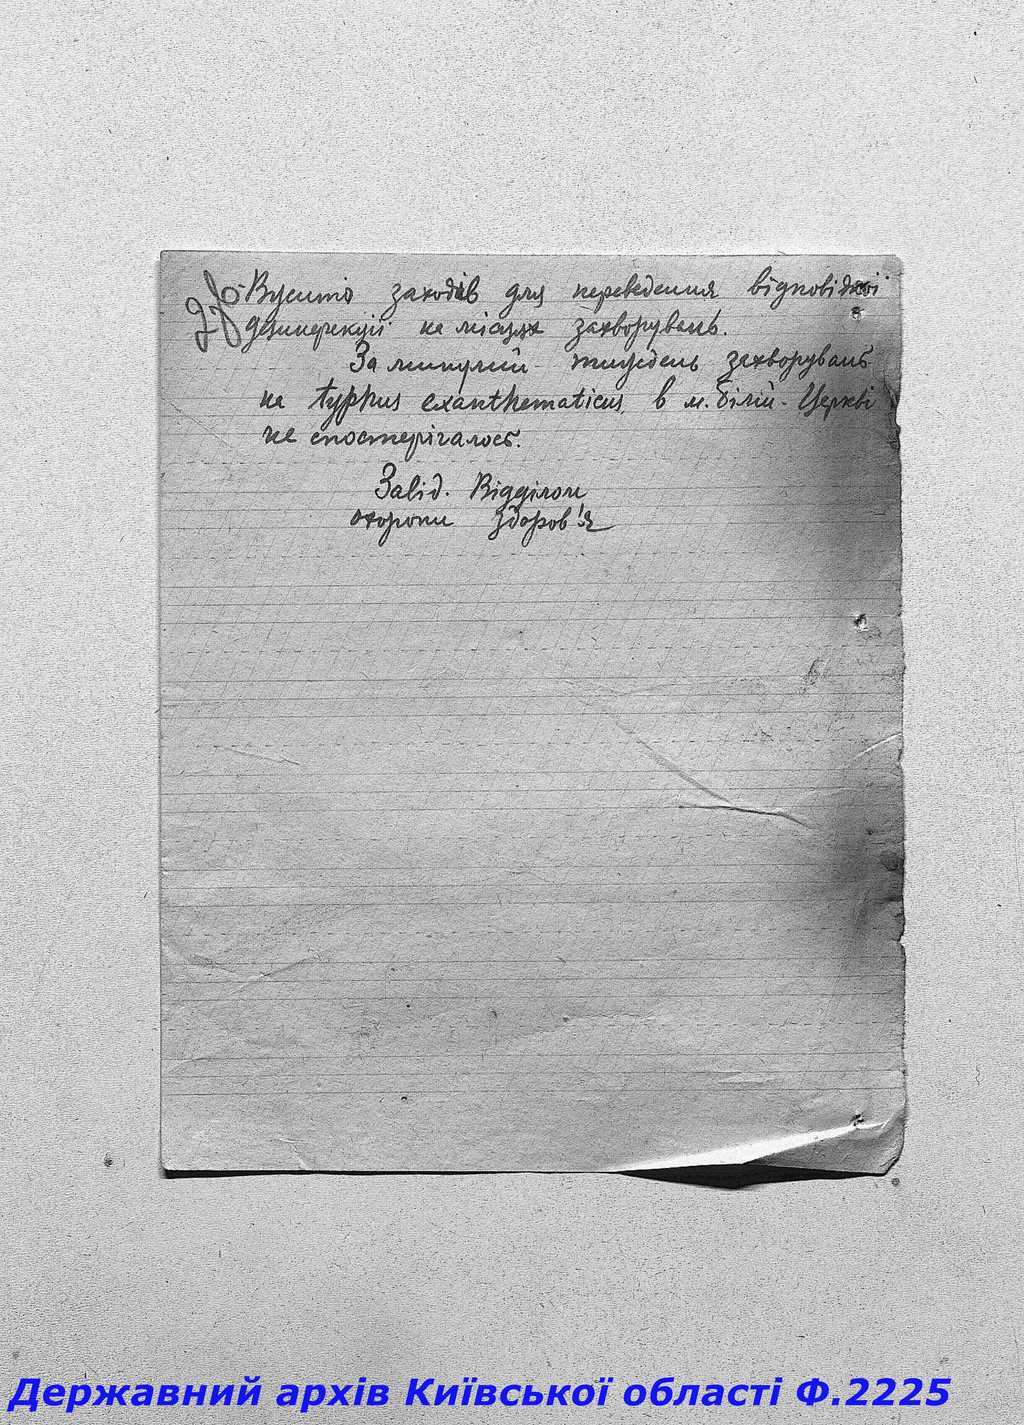 Вжито заходів для переведення відповідної
дезинфекції на місцях захворувань.
За минулий тиждень захворувань
на typhus exanthematicus в м. Білій-Церкві
не спостерігалось.
Завід. Відділом
охорони здоров'я
Державний архів Київської області Ф.2225